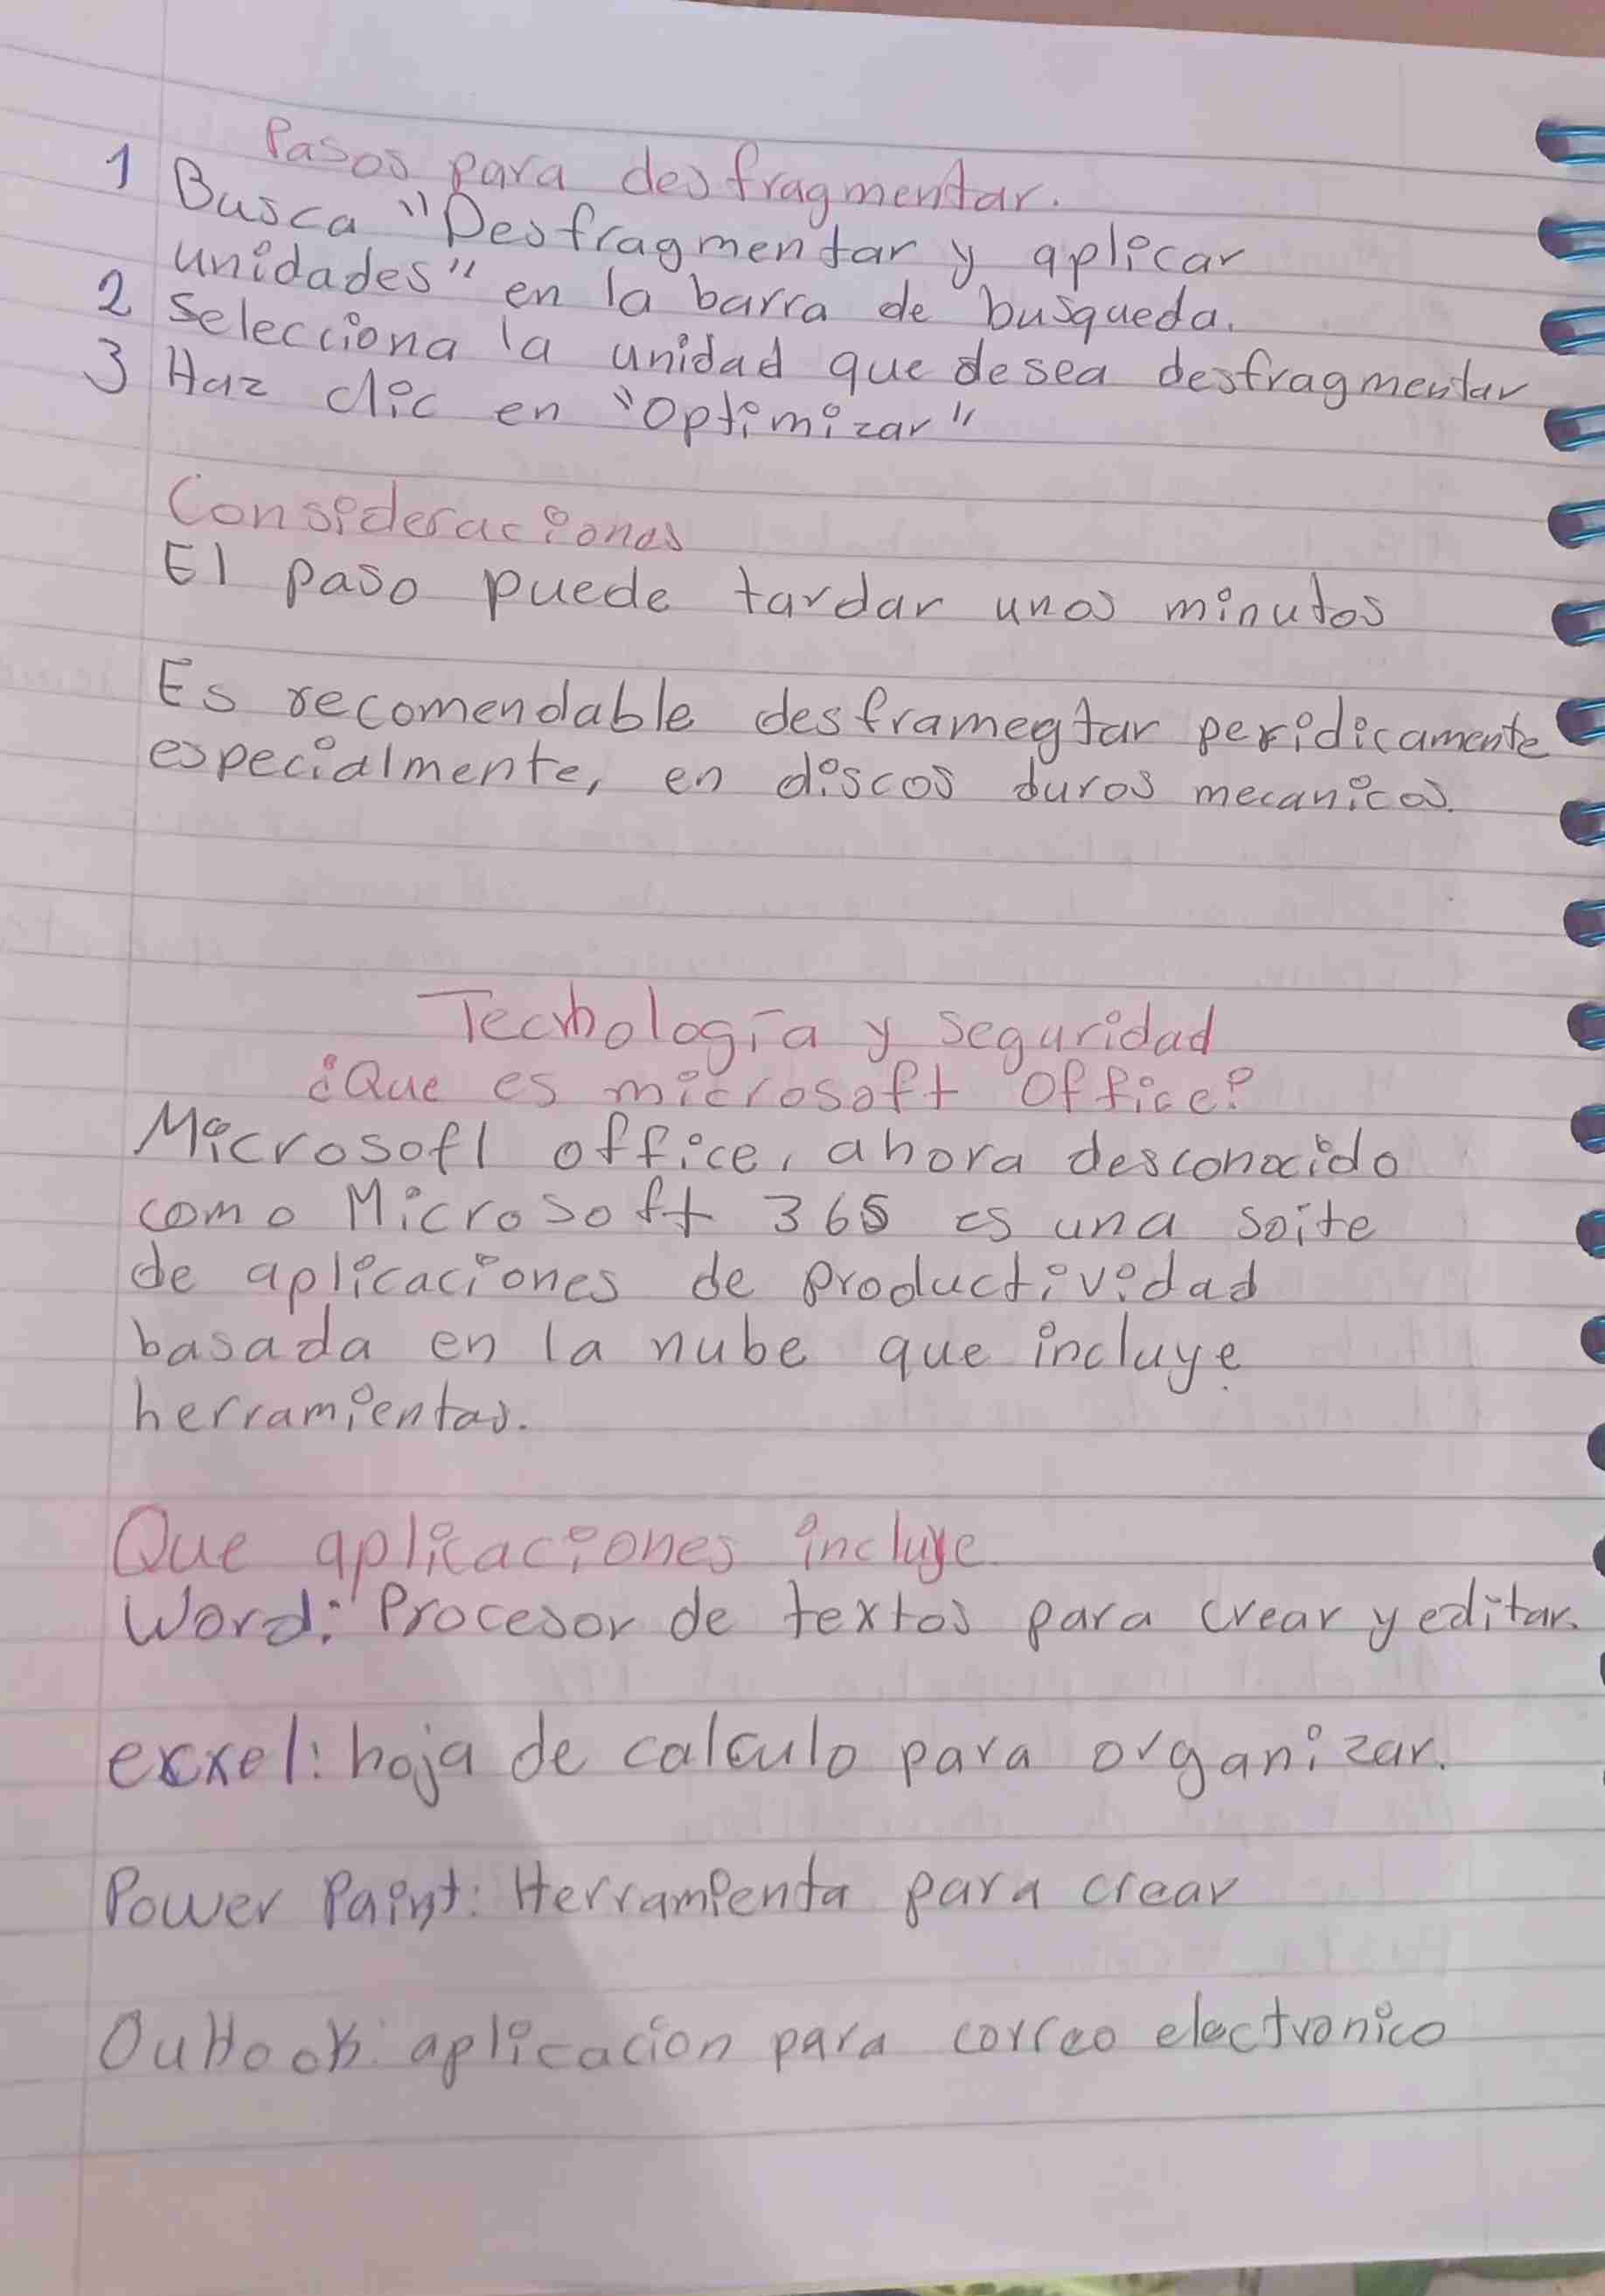 Pasos para desfragmentar.
1 Busca "Desfragmentar y aplicar
unidades" en la barra de busqueda.
2 Selecciona la unidad que desea desfragmentar
3 Haz clic en "Optimizar"
Consideraciones
El paso puede tardar unos minutos
Es recomendable desframegtar peridicamente
especialmente, en discos duros mecanicos.
Tecnología y seguridad
¿Que es microsoft Office?
Microsofl office, ahora desconocido
como Microsoft 365 es una soite
de aplicaciones de productividad
basada en la nube que incluye
herramientas.
Que aplicaciones incluye
Word: Procesor de textos para crear y editar.
excxel: hoja de calculo para organizar.
Power Paint: Herramienta para crear
Outlook: aplicacion para correo electronico